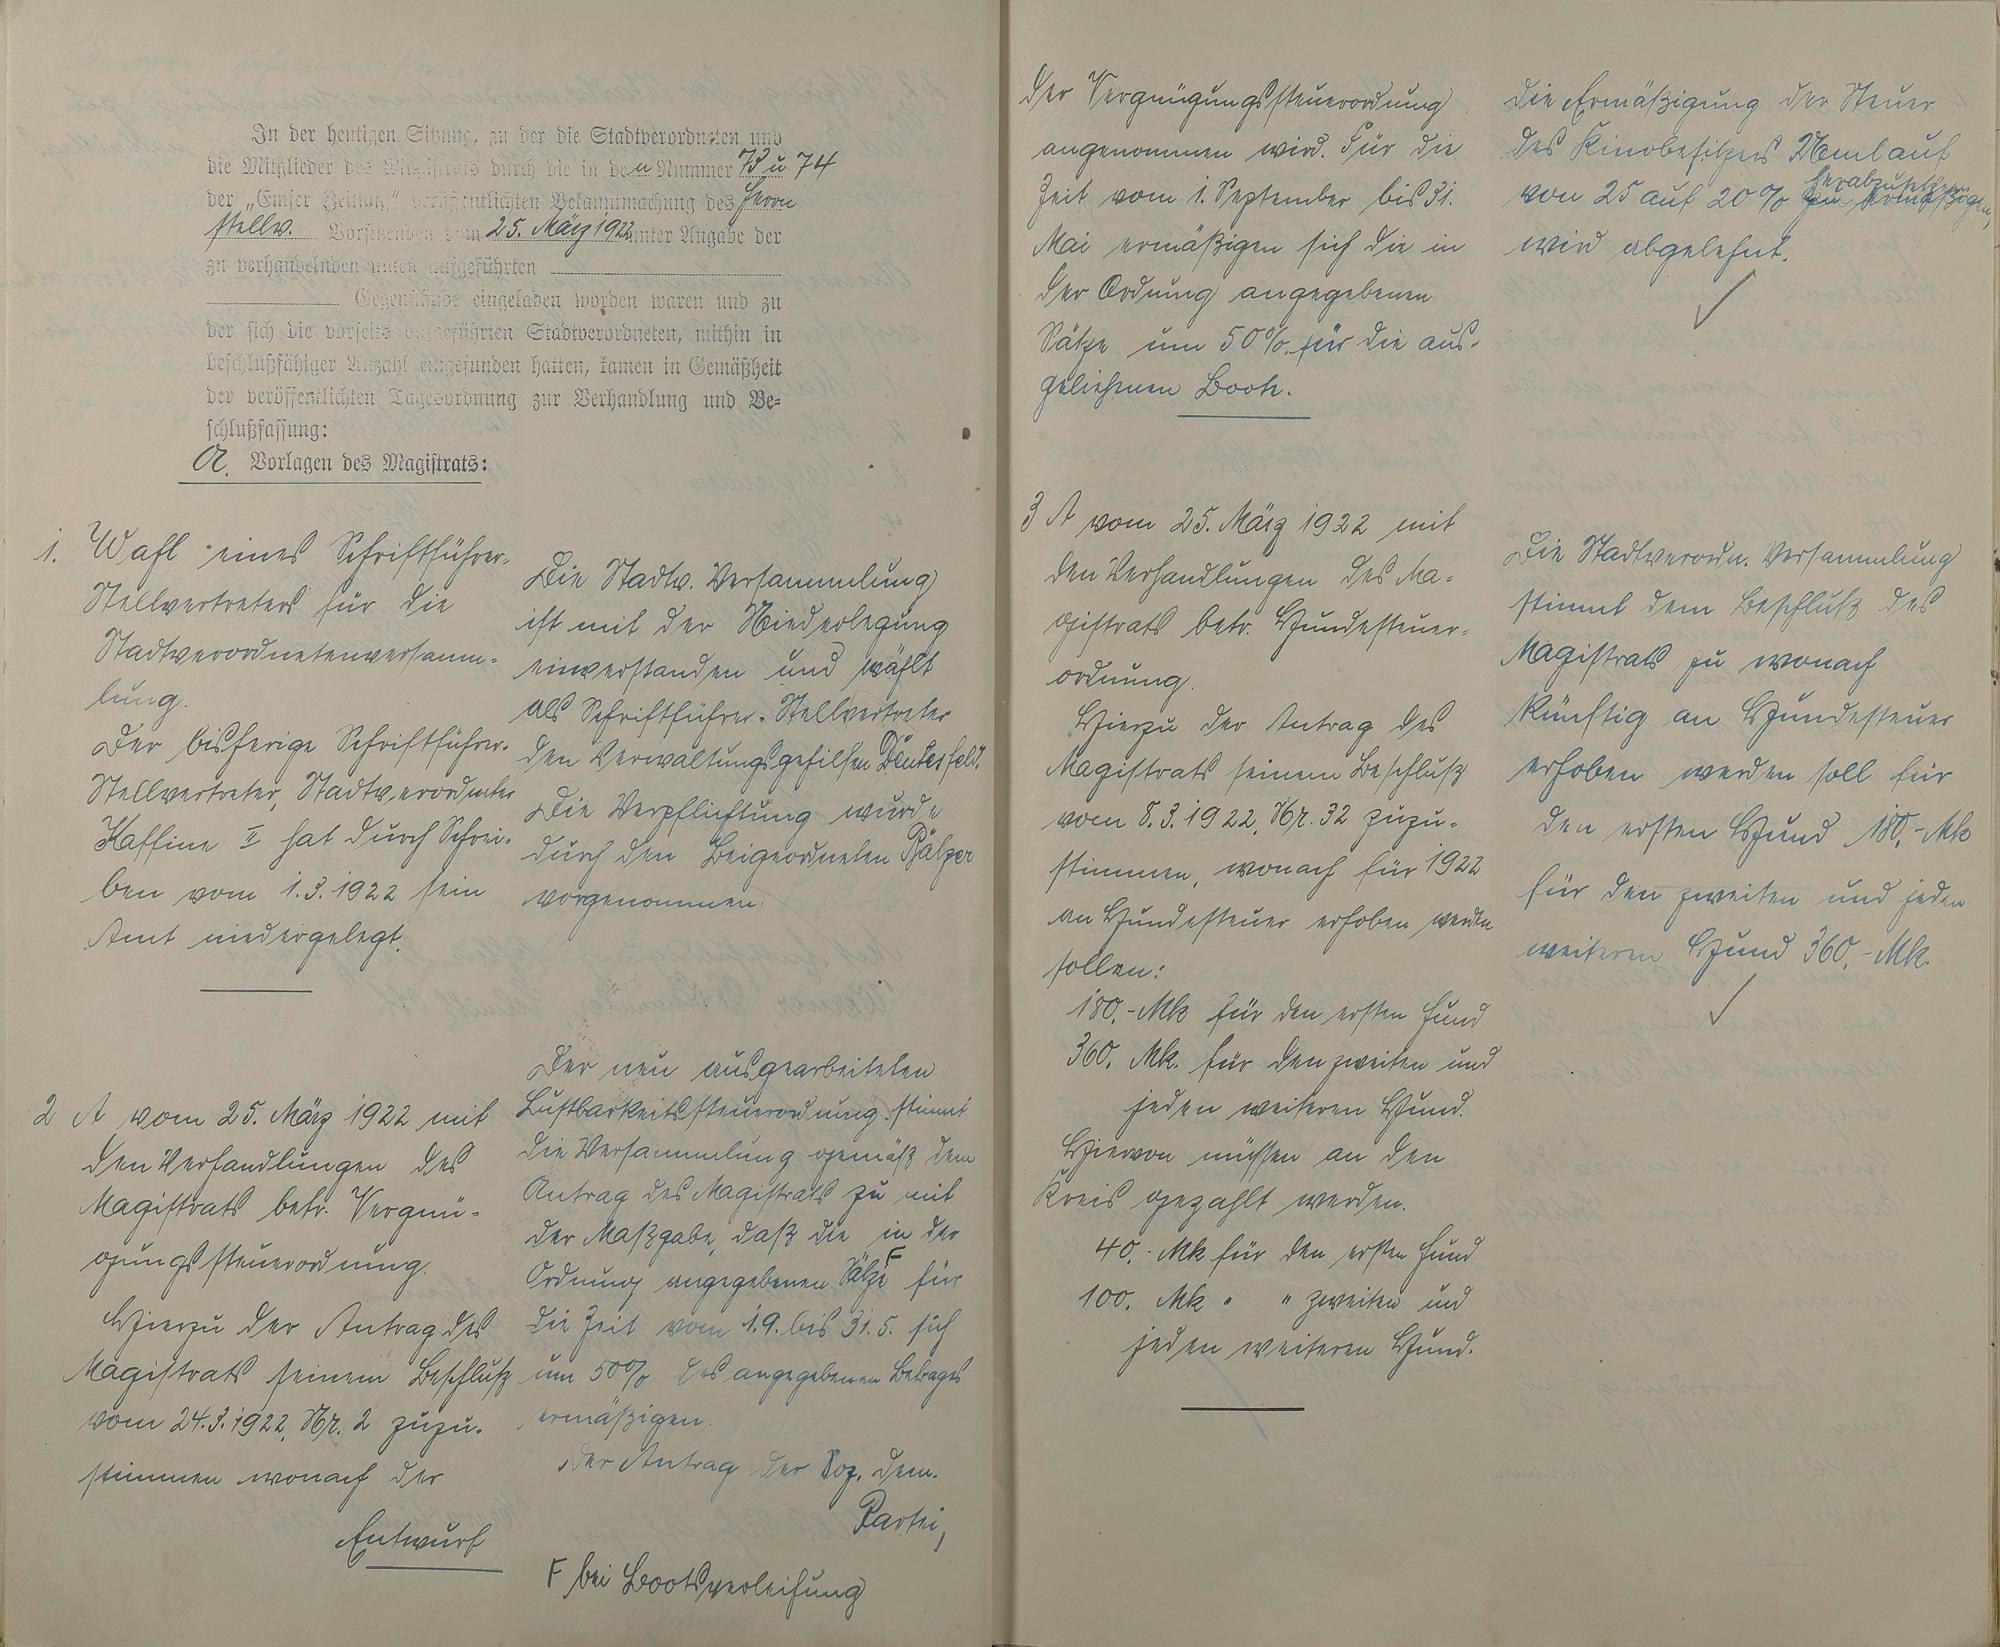 In der heutigen Sitzung, zu der die Stadtverordneten und
die Mitglieder des Magistrats durch die in den Nummer 73 u 74
der „Emser Zeitung" veröffentlichten Bekanntmachung des Herrn
stellv. Vorsitzenden vom 25. März 1922 unter Angabe der
zu verhandelnden unten aufgeführten
Gegenstände eingeladen worden waren und zu
der sich die vorseits aufgeführten Stadtverordneten, mithin in
beschlußfähiger Anzahl eingefunden hatten, kamen in Gemäßheit
der veröffentlichten Tagesordnung zur Verhandlung und Be-
schlußfassung:
A. Vorlagen des Magistrats:
1. Wahl eines Schriftführer-
Stellvertreters für die
Stadtverordnetenversamm-
lung.
Der bisherige Schriftführer-
Stellvertreter, Stadtverordneter
Kaffine II hat durch Schrei-
ben vom 1.3.1922 sein
Amt niedergelegt.
Die Stadtv. Versammlung
ist mit der Niederlegung
einverstanden und wählt
als Schriftführer-Stellvertreter
den Verwaltungsgehilfen
Die Verpflichtung wurde
durch den Beigeordneten Balzer
vorgenommen.
2 A vom 25. März 1922 mit
den Verhandlungen des
Magistrats betr. Vergnü-
gungssteuerordnung.
Hierzu der Antrag des
Magistrats seinem Beschluß
vom 24.3.1922, Nr. 2 zuzu-
stimmen wonach der
Entwurf
Der neu ausgearbeiteten
Lustbarkeitssteuerordnung stimmt
die Versammlung gemäß dem
Antrag des Magistrats zu mit
der Maßgabe, daß die in der
Ordnung angegebenen Sätze F für
die Zeit vom 1.9. bis 31.5. sich
um 50% des angegebenen Betrages
ermäßigen.
Der Antrag der Soz. dem.
Partei,
F bei Bootsverleihung
der Vergnügungssteuerordnung
angenommen wird. Für die
Zeit vom 1. September bis 31.
Mai ermäßigen sich die in
der Ordnung angegebenen
Sätze um 50% für die aus-
geliehenen Boote.
die Ermäßigung der Steuer
des Kinobesitzers auf
von 25 auf 20% herabzusetzen
zu ermäßigen,
wird abgelehnt.
3 A vom 25. März 1922 mit
den Verhandlungen des Ma-
gistrats betr. Hundesteuer-
ordnung.
Hierzu der Antrag des
Magistrats seinem Beschluß
vom 8.3.1922, Nr. 32 zuzu-
stimmen, wonach für 1922
an Hundesteuer erhoben werden
sollen:
180,- Mk für den ersten Hund
360, Mk. für den zweiten und
jeden weiteren Hund.
Hiervon müssen an den
Kreis gezahlt werden.
40,- Mk für den ersten Hund
100, Mk " " zweiten und
jeden weiteren Hund.
Die Stadtverordn. Versammlung
stimmt dem Beschluß des
Magistrats zu wonach
künftig an Hundesteuer
erhoben werden soll für
den ersten Hund 180,- Mk
für den zweiten und jeden
weiteren Hund 360,- Mk.